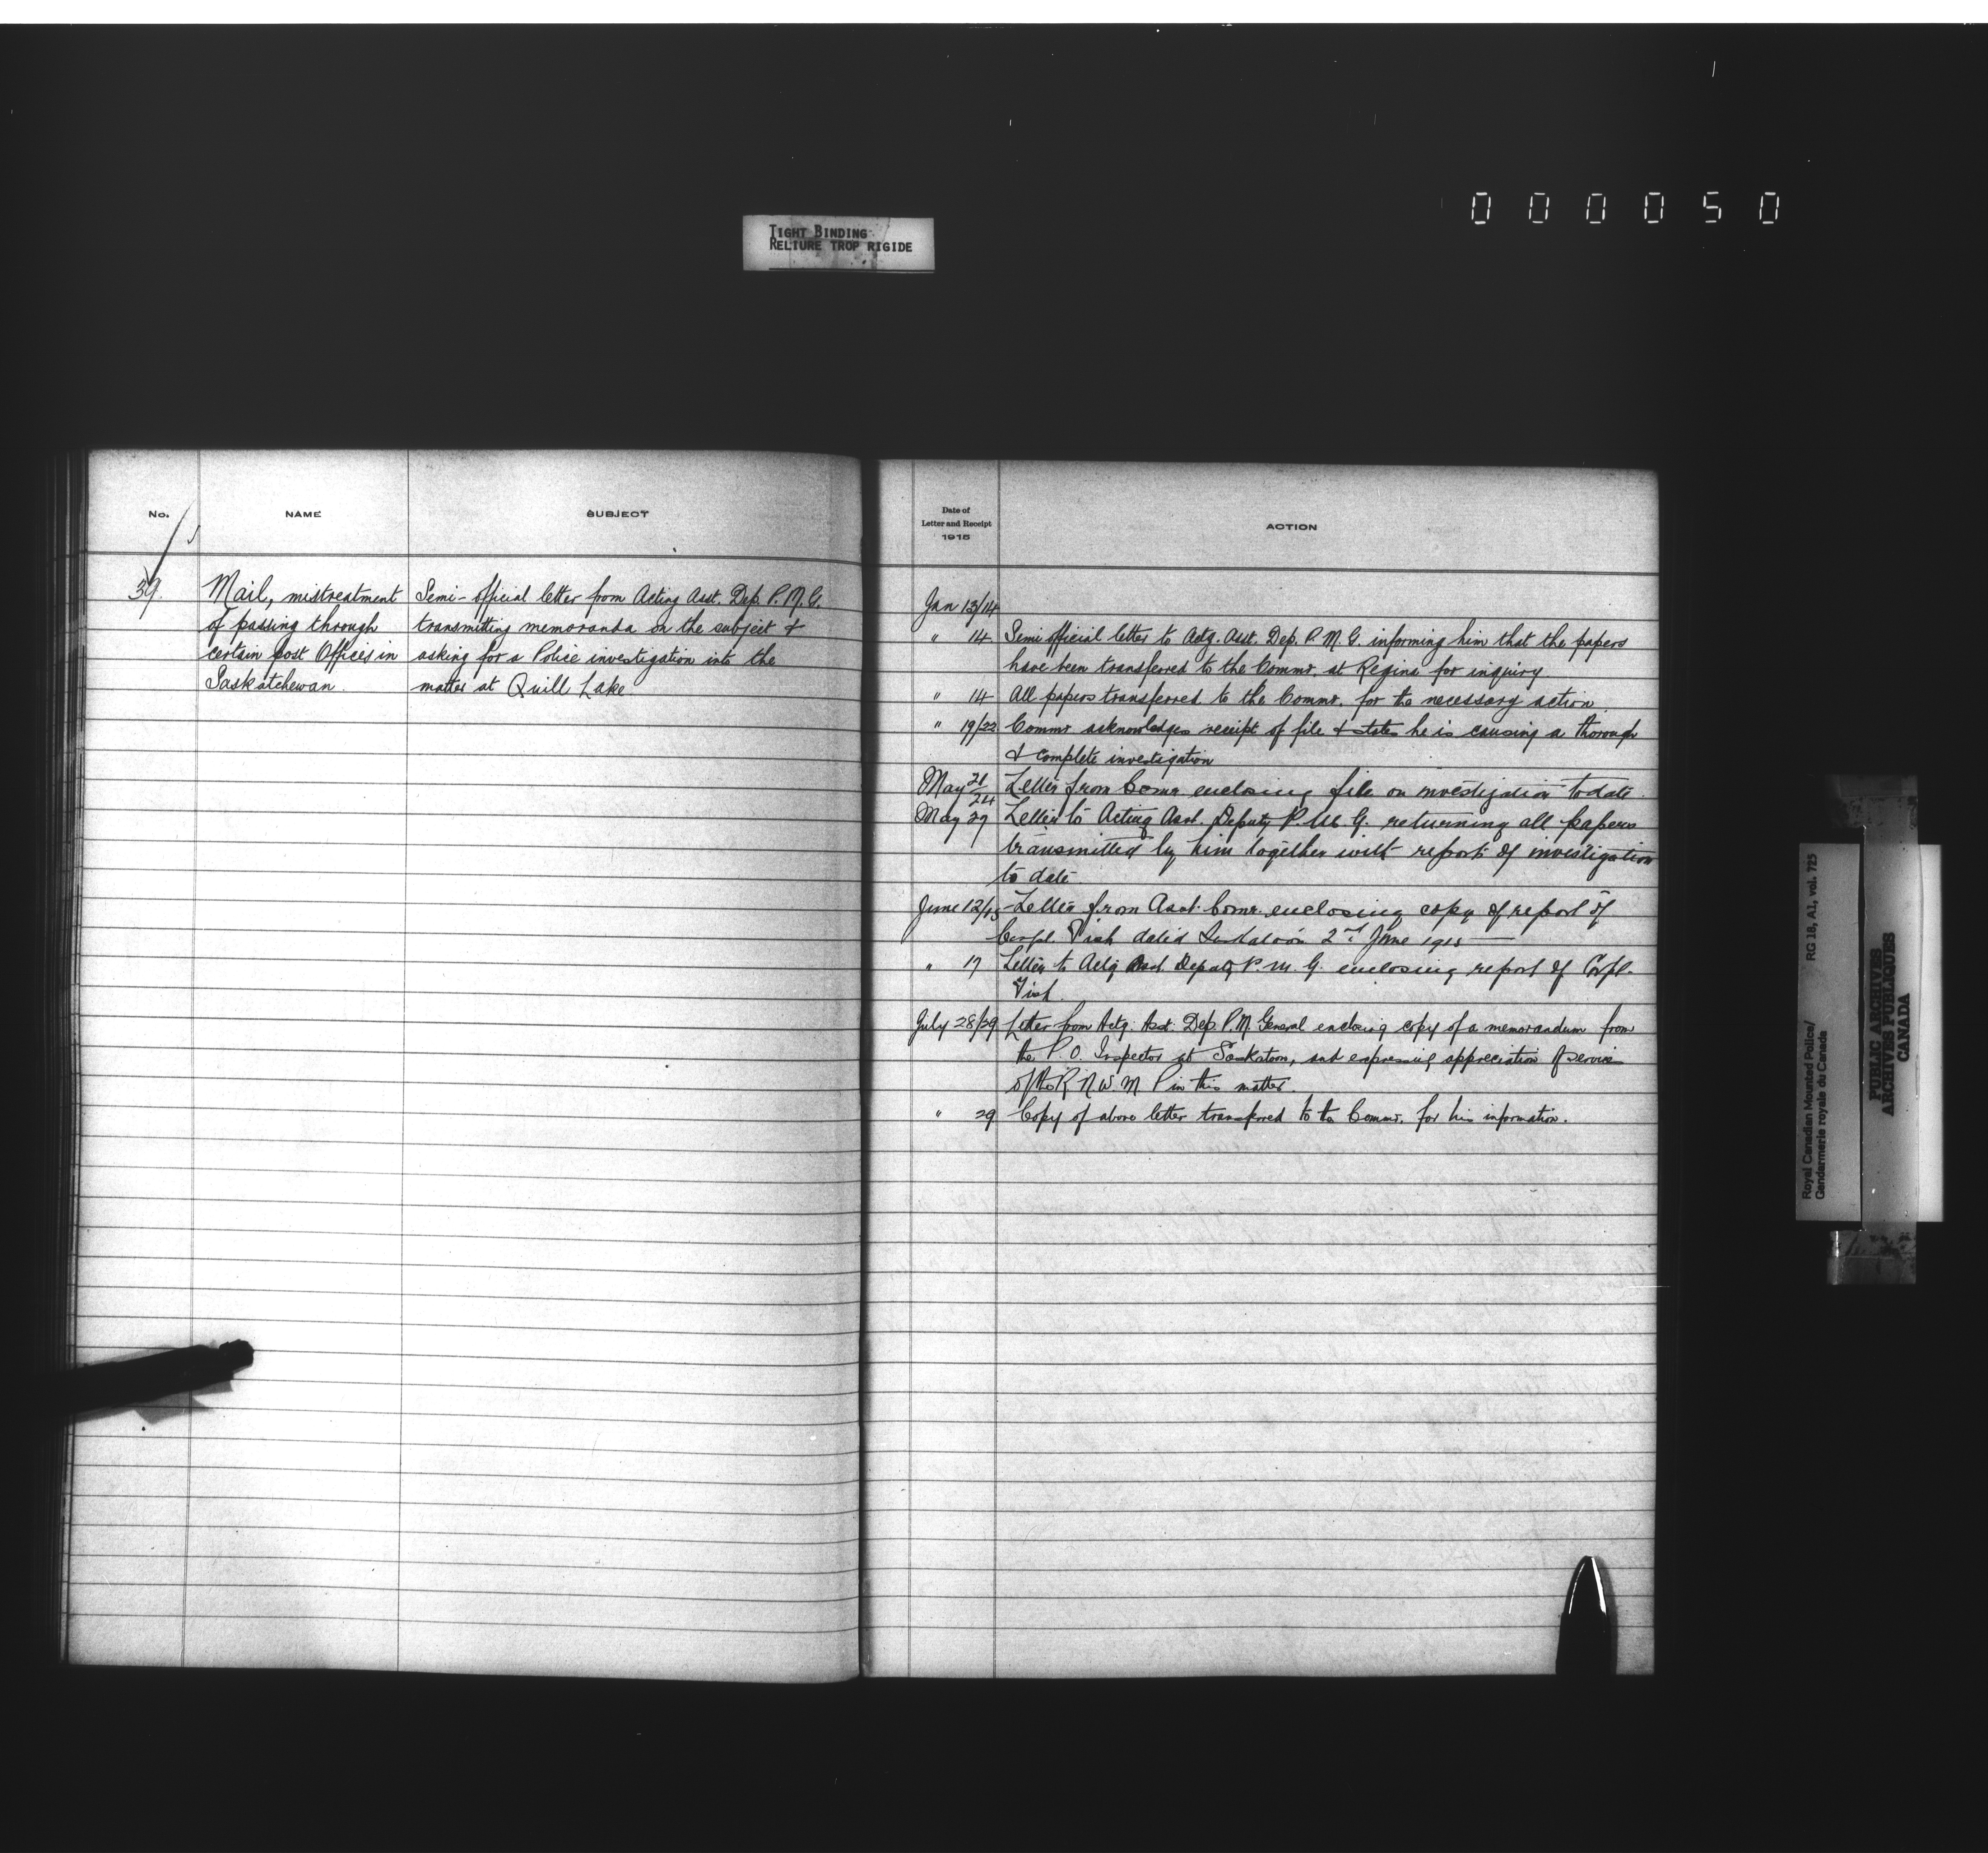 000050
TIGHT BINDING
RELIURE TROP RIGIDE
No.
NAME
SUBJECT
39.
Mail, mistreatment
of passing through
certain post Offices in
Saskatchewan.
Semi-official letter from Acting Asst. Dep. P.M.G.
transmitting memoranda on the subject &
asking for a Police investigation into the
matter at Quill Lake
Date of
Letter and Receipt
1915
ACTION
Jan 13/14
" 14 Semi official letter to Actg. Asst. Dep. P.M.G. informing him that the papers
have been transferred to the Commr. at Regina for inquiry.
" 14 All papers transferred to the Commr. for the necessary action.
" 19/22 Commr acknowledges receipt of file & states he is causing a thorough
& complete investigation
May 21/24 Letter from Comr. enclosing file on investigation to date.
May 27 Letter to Acting Asst. Deputy P.M.G. returning all papers
transmitted by him together with report of investigation
to date
June 12/15 Letter from Asst. Comr. enclosing copy of report of
Corpl. dated Saskatoon 2nd June 1915
" 17 Letter to Actg Asst Deputy P.M.G. enclosing report of Corpl.
July 28/29 Letter from Actg. Asst. Dep. P.M General enclosing copy of a memorandum from
the P.O. Inspector at Saskatoon, and expressing appreciation of services
of the R N W M P in this matter.
" 29 Copy of above letter transferred to the Commr. for his information.
Royal Canadian Mounted Police/
Gendarmerie royale du Canada
RG 18, A1, vol. 725
PUBLIC ARCHIVES
ARCHIVES PUBLIQUES
CANADA